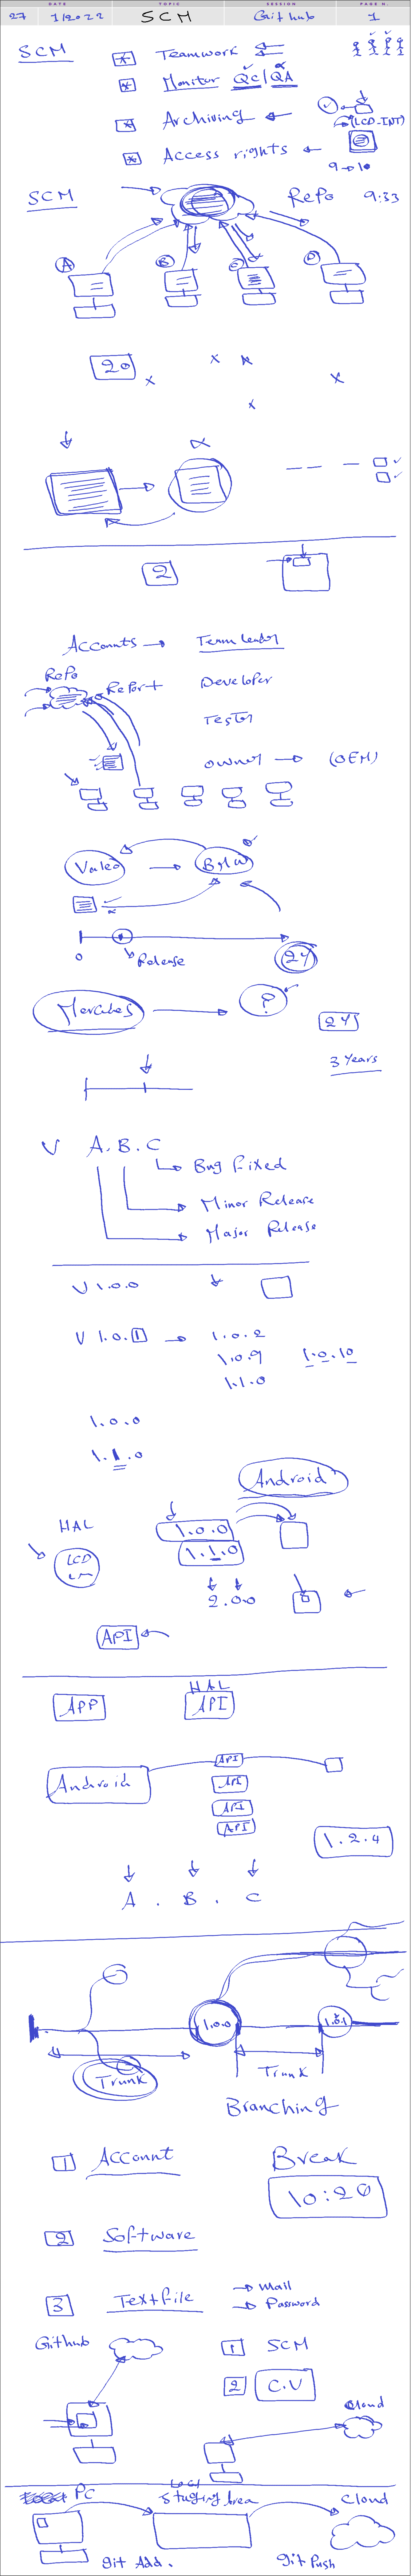 DATE TOPIC SESSION PAGE N.
27 1/2022 SCM Github 1
SCM * Teamwork
* Monitor QC/QA
* Archiving
(LCD_INT)
* Access rights
9→10
SCM Repo 9:33
A B C D
20
2
Accounts → Team leader
Repo
Report Developer
Tester
owner → (OEM)
Valeo → BMW
0 Release 24
Mercedes → ?
24
3 Years
V A.B.C
Bug fixed
Minor Release
Major Release
V 1.0.0
V 1.0.1 → 1.0.2
1.0.9 1.0.10
1.1.0
1.0.0
1.1.0
Android
HAL 1.0.0
LCD 1.1.0
2.0.0
API
HAL
APP API
Android API
API
API
API
1.2.4
A . B . C
1.0.0 1.0.1
Trunk Trunk
Branching
1 Account Break
10:20
2 Software
3 Textfile → Mail
→ Password
Github 1 SCM
2 C.V
Cloud
PC Local Staging Area Cloud
git Add . git Push